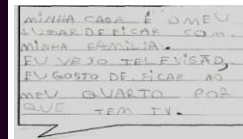 MINHA CASA É O MEU
LUGAR DE FICAR COM
MINHA FAMILIA.
EU VEJO TELEVISÃO,
EU GOSTO DE FICAR NO
MEU QUARTO POR
QUE TEM TV.